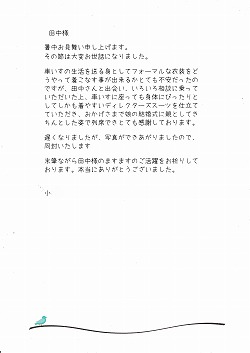 田中様
暑中お見舞い申し上げます。
その節は大変お世話になりました。
車いすの生活を送る身としてフォーマルな衣装をど
うやって着こなす事が出来るかとても不安だったの
ですが、田中さんと出会い、いろいろ相談に乗って
いただいた上、車いすに座っても身体にぴったりと
してしかも着やすいディレクタースーツを仕立てい
ていただき、おかげさまで娘の結婚式に親としてき
ちんとした姿で列席できとても感謝しております。
遅くなりましたが、写真ができあがりましたので、
同封いたします
末筆ながら田中様のますますのご活躍をお祈りして
おります。本当にありがとうございました。
小